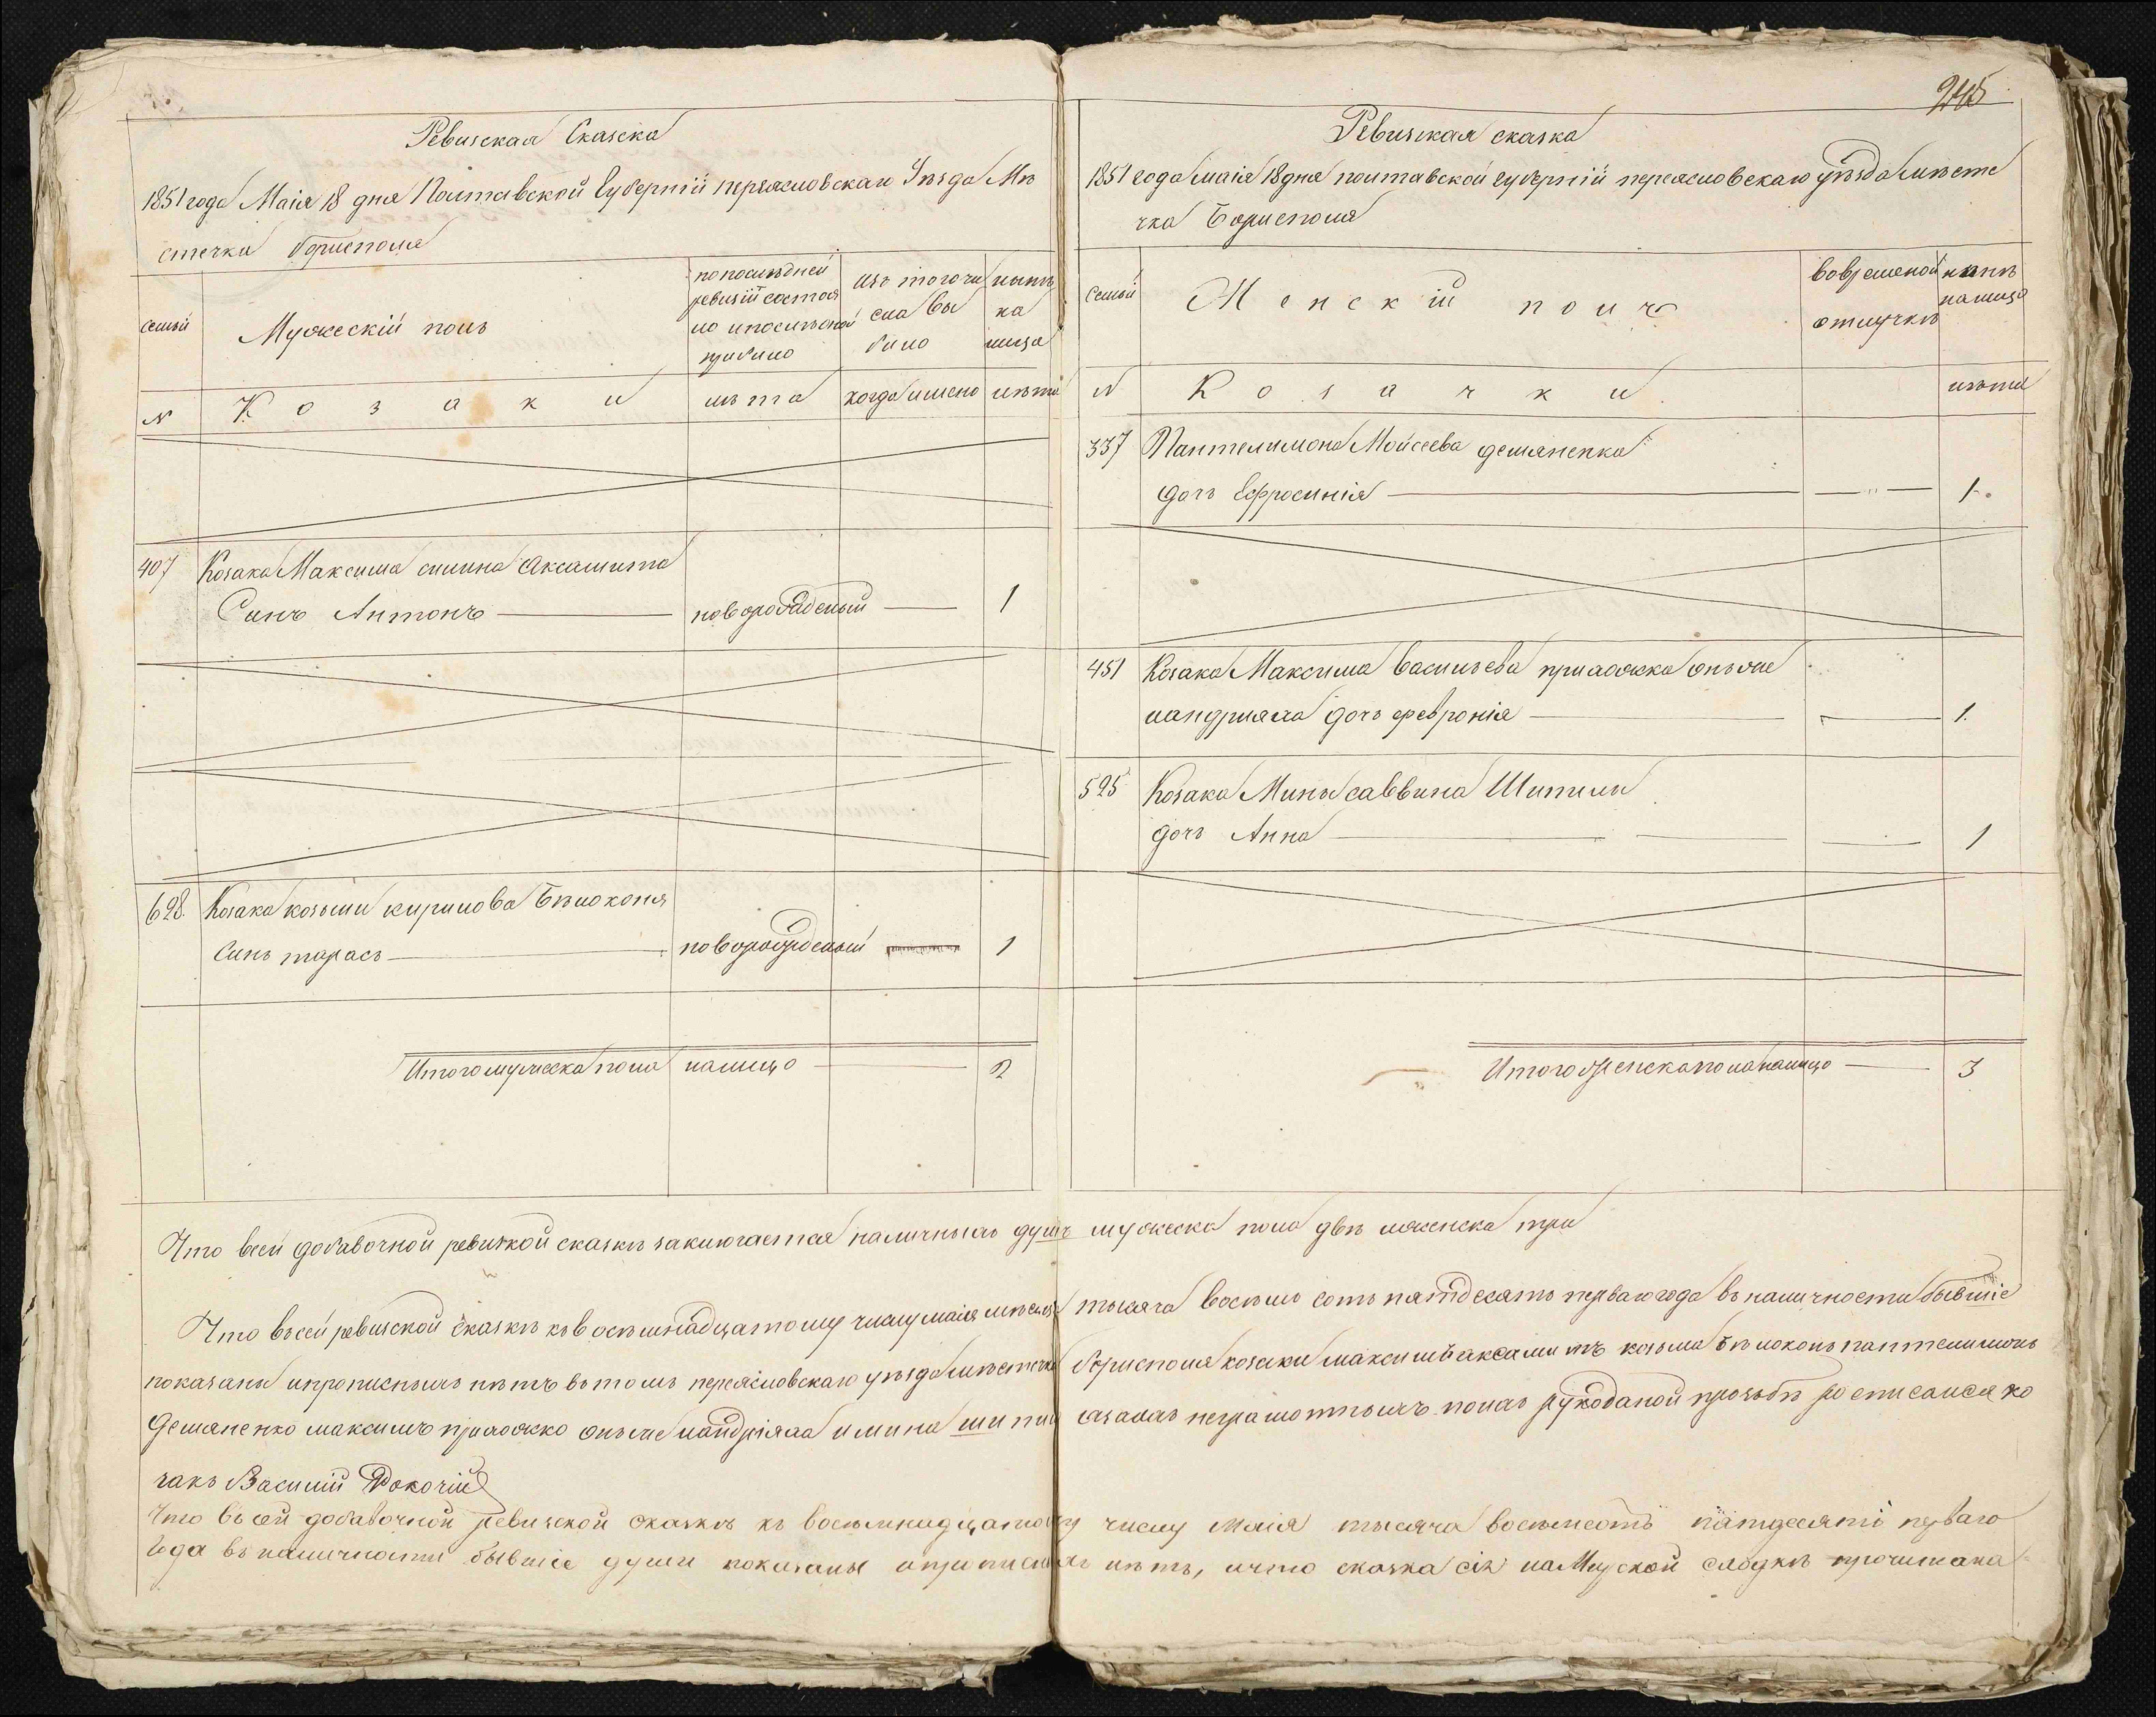 Ревизская Сказка
1851 года Маія 18 дня Полтавской Губерніи переяславскаго Уезда Мѣ
стечка борисполя
семьи
Мужескій полъ
по последней
ревизіи состоя
ло и после оной
прибило
изъ того чи
сла вы
било
нынѣ
на
лицо
N
К о з а к и
лѣта
когда имено
лѣта
407
Козака Максима силина Аксамита
Синъ Антонъ
новорожденый
1
628.
Козака козьми кирилова Бѣлоконя
Синъ тарасъ
новорожденый
1
Итого мужеска пола налицо
2
245
Ревизкая сказка
1851 года маія 18 дня полтавской губерніи переясловскаго уѣзда мѣсте
чка Борисполя
семьи
Женскій полъ
во временой
отлучкѣ
нынѣ
налицо
N
К о з а ч к и
лѣта
337
Пантелимона Мойсеева демяненка
дочь Ефросинія
1.
451
Козака Максима Васильева приложка онъ же
дочь февронія
1.
525
Козака Мины саввина Шипили
дочь Анна
1
Итого женска пола налицо
3
Что всей добавочной ревизкой сказкѣ заключается наличныхъ душъ мужеска пола двѣ женска три
Что въ сей ревизской сказкѣ къ восемнадцатому числу маія месяца тысяча восемь сотъ пятдесятъ перваго года въ наличности бывшіе
показаны и прописныхъ нѣтъ въ томъ переясловскаго уѣзда мѣстечка борисполя козаки максимъ аксамитъ козьма Бѣлоконь пантелимонъ
Демяненко максимъ приложко онъ же и мина шипил неграмотныхъ по ихъ рукоданой прозьбѣ росписался ко
закъ Василій Рокочій
Что въ сей добавочной ревизской сказкѣ къ восемнадцатому числу маія тысяча восемсотъ пятдесятъ перваго
года въ наличности бывшіе души показаны и прописныхъ нѣтъ, и что сказка сія на Мирской сходкѣ прочитана